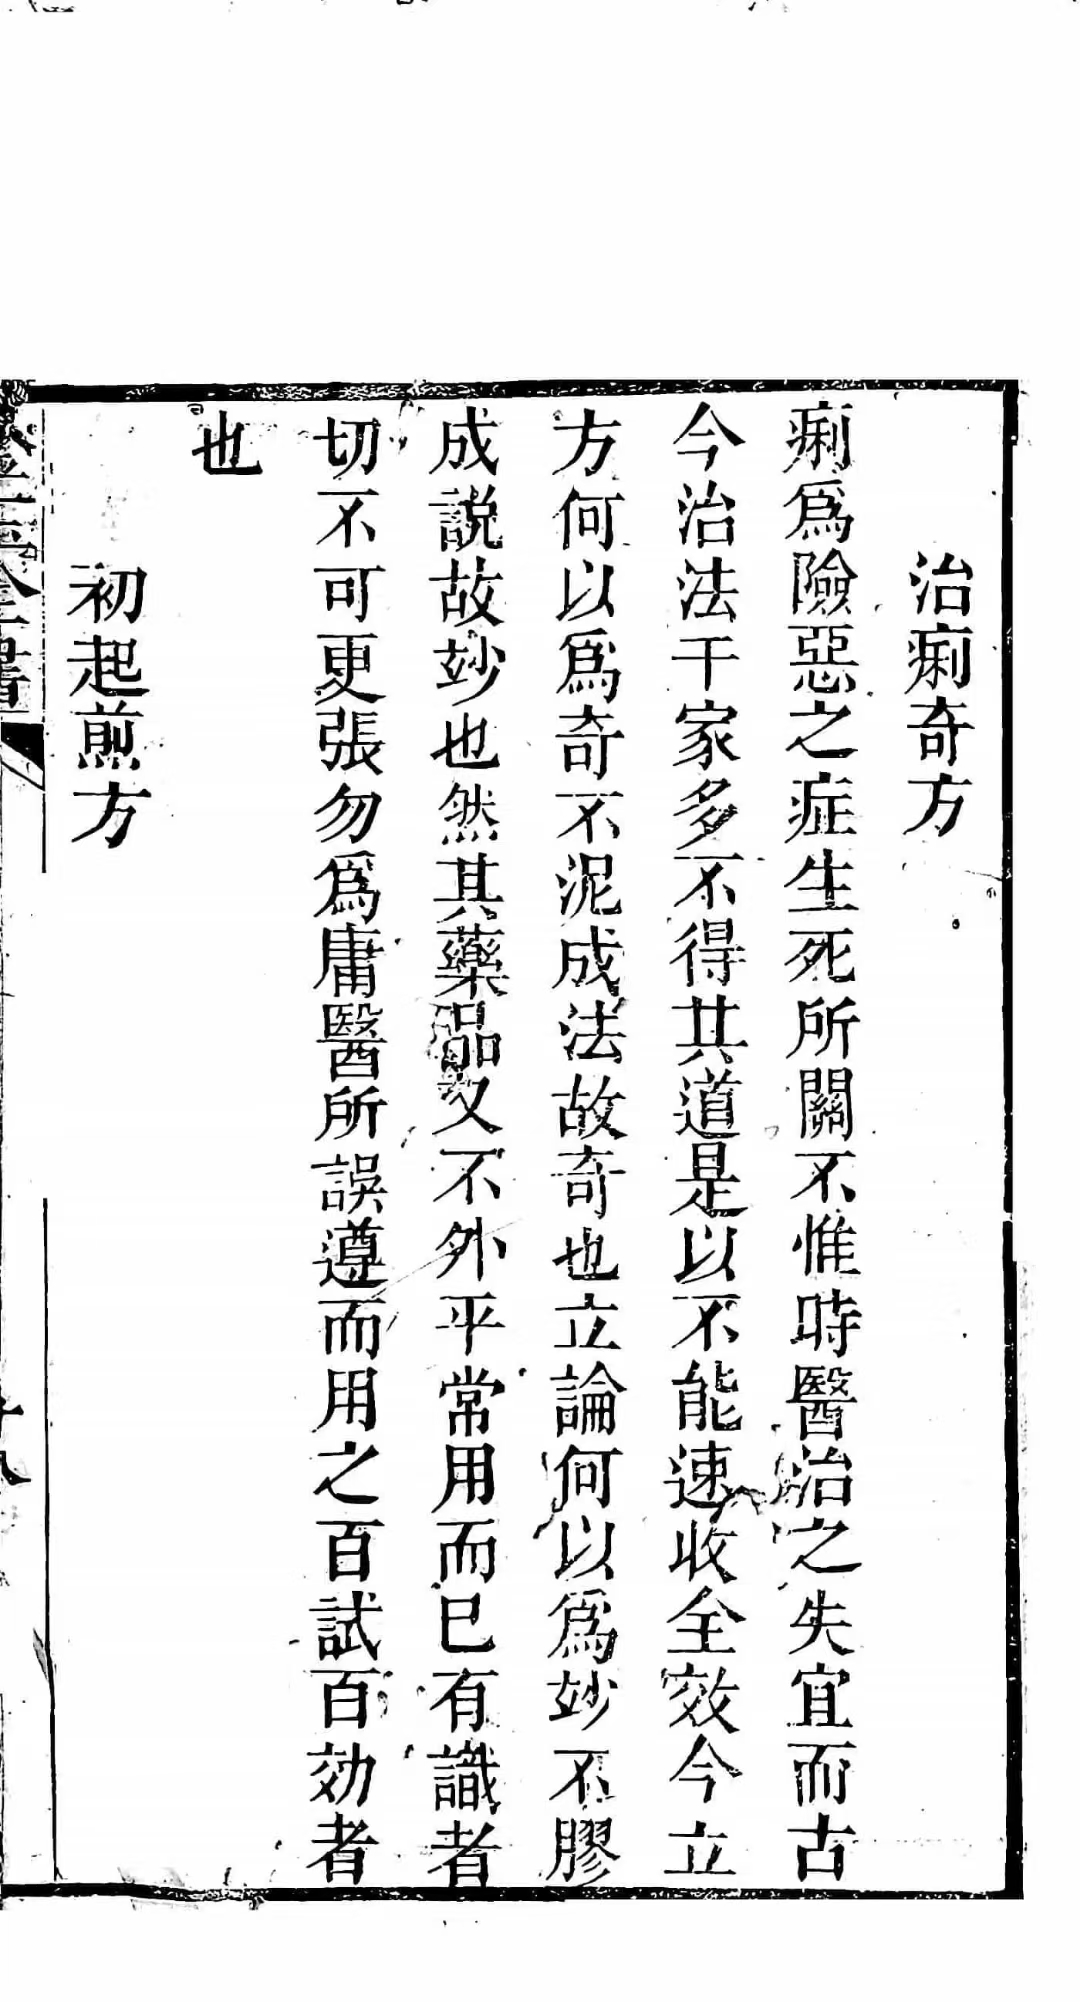 治痢奇方
痢爲險惡之症生死所關不惟時醫治之失宜而古
今治法千家多不得其道是以不能速收全效今立
方何以爲奇不泥成法故奇也立論何以爲妙不膠
成説故妙也然其藥品又不外平常用而已有識者
切不可更張勿爲庸醫所誤遵而用之百試百効者
也
初起煎方